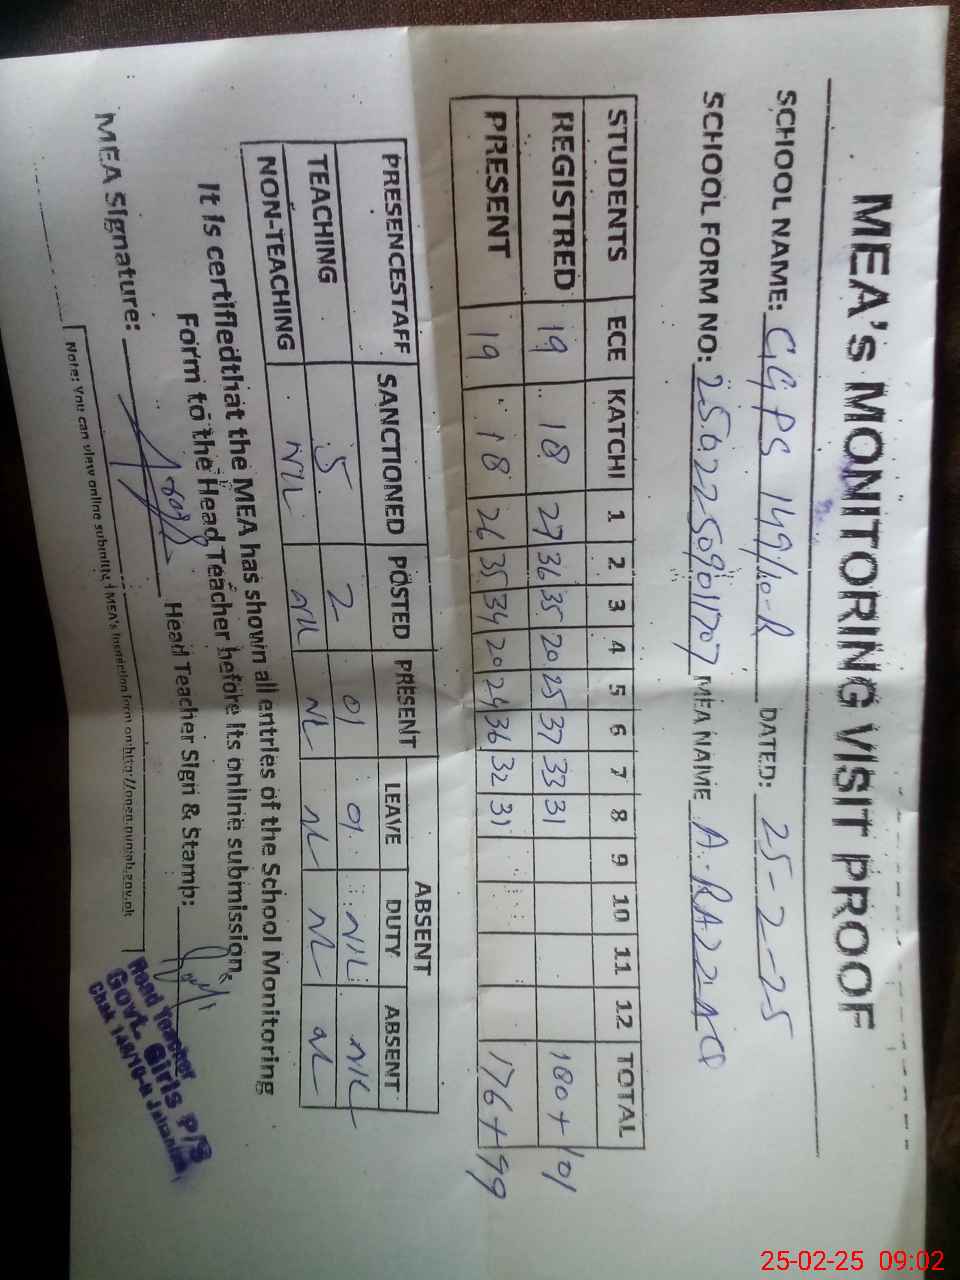 MEA'S MONITORING VISIT PROOF
SCHOOL NAME: GGPS 149/10-R DATED: 25-2-25
SCHOOL FORM NO: 25622509011707 MEA NAME A. RAZZAQ
STUDENTS ECE KATCHI 1 2 3 4 5 6 7 8 9 10 11 12 TOTAL
REGISTRED 19 18 27 36 35 20 25 37 33 31 180+101
PRESENT 19 18 26 35 34 20 24 36 32 31 176+99
PRESENCESTAFF SANCTIONED POSTED PRESENT ABSENT
LEAVE DUTY ABSENT
TEACHING 5 2 01 01 NIL NIL
NON-TEACHING NIL NIL NIL NIL NIL NIL
It is certifiedthat the MEA has shown all entries of the School Monitoring
Form to the Head Teacher before its online submission.
MEA Signature: Head Teacher Sign & Stamp:
Head Teacher
Govt. Girls P/S
Chak 149/10-R Jahanian
Note: You can view online submitted MEA's Inspection form on:http://open.punjab.gov.pk
25-02-25 09:02